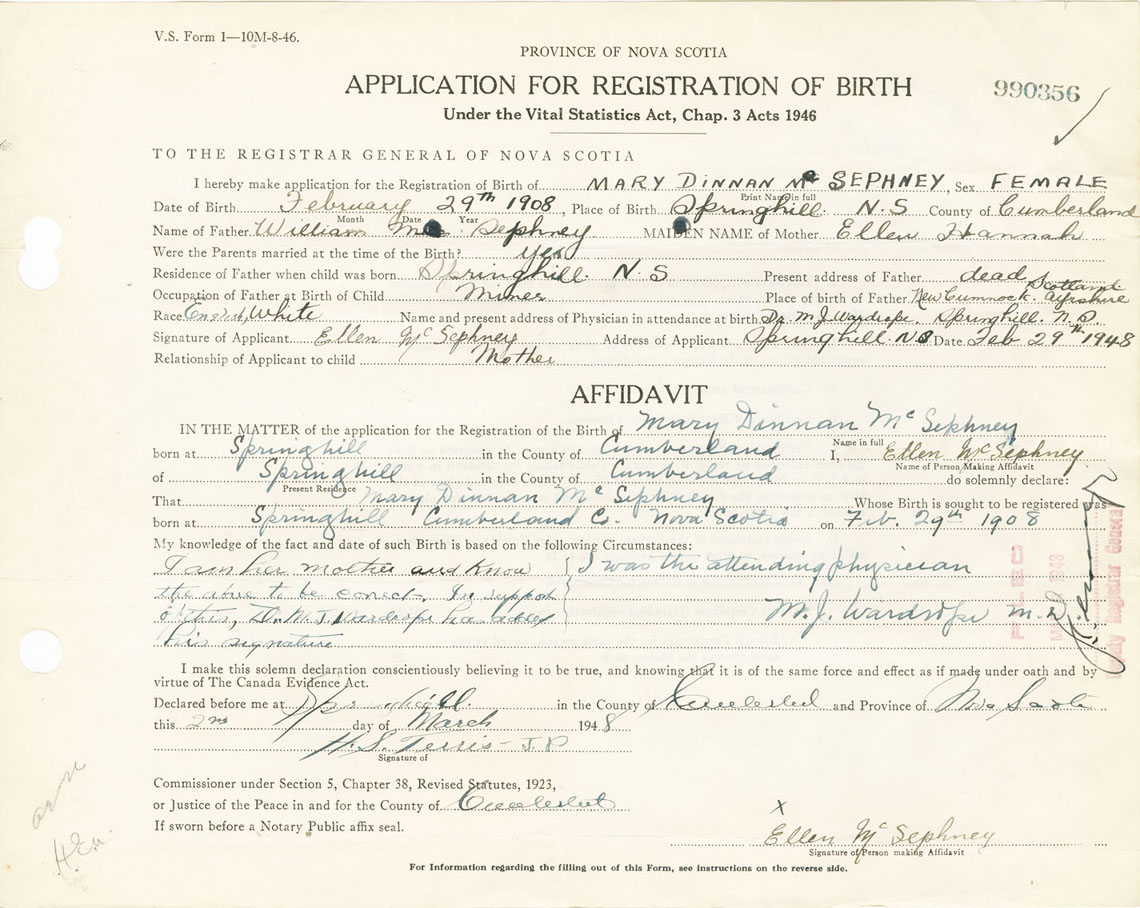 V.S. Form 1—10M-8-46.
PROVINCE OF NOVA SCOTIA
APPLICATION FOR REGISTRATION OF BIRTH
990356
Under the Vital Statistics Act, Chap. 3 Acts 1946
TO THE REGISTRAR GENERAL OF NOVA SCOTIA
I hereby make application for the Registration of Birth of MARY DINNAN Mc SEPHNEY, Sex FEMALE
Print Name in full
Date of Birth February 29th 1908, Place of Birth Springhill N.S County of Cumberland
Month Date Year
Name of Father William Mc Sephney MAIDEN NAME of Mother Ellen Hannah
Were the Parents married at the time of the Birth? yes
Residence of Father when child was born Springhill N S Present address of Father dead
Occupation of Father at Birth of Child Miner Place of birth of Father New Cumnock Ayrshire Scotland
Race White Name and present address of Physician in attendance at birth Dr. M J Wardrope, Springhill. N.S
Signature of Applicant Ellen Mc Sephney Address of Applicant Springhill N.S Date Feb 29th 1948
Relationship of Applicant to child Mother
AFFIDAVIT
IN THE MATTER of the application for the Registration of the Birth of Mary Dinnan Mc Sephney
Name in full
born at Springhill in the County of Cumberland I, Ellen McSephney
Name of Person Making Affidavit
of Springhill in the County of Cumberland do solemnly declare:
Present Residence
That Mary Dinnan Mc Sephney Whose Birth is sought to be registered was
born at Springhill Cumberland Co. Nova Scotia on Feb. 29th 1908
My knowledge of the fact and date of such Birth is based on the following Circumstances:
I am her mother and know I was the attending physician
the above to be correct. In support M. J. Wardrope M.D
of this, Dr. M J Wardrope has
his signature
I make this solemn declaration conscientiously believing it to be true, and knowing that it is of the same force and effect as if made under oath and by
virtue of The Canada Evidence Act.
Declared before me at Springhill in the County of Cumberland and Province of Nova Scotia
this 2nd day of March 1948
H. S. Terris - J.P
Signature of
Commissioner under Section 5, Chapter 38, Revised Statutes, 1923,
or Justice of the Peace in and for the County of Cumberland
If sworn before a Notary Public affix seal.
X
Ellen Mc Sephney
Signature of Person making Affidavit
For Information regarding the filling out of this Form, see instructions on the reverse side.